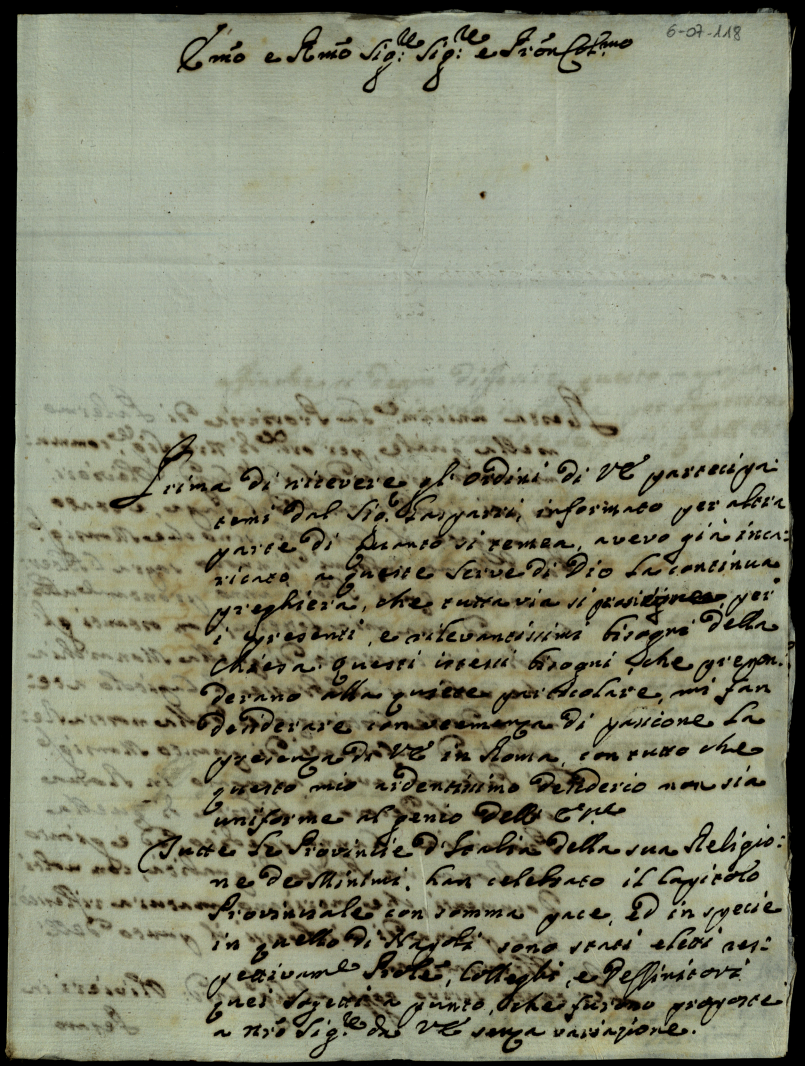 6-07-118
Emo e Rmo Sig.re Sig.re e Pron Col.mo
Prima di ricevere gl'ordini di VE partecipa:
temi dal Sig.r Gasparri, informato per altra
parte di quanto si temea, avevo già inca:
ricato a queste Serve di Dio la continua
preghiera, che tutta via si prosiegue per
i presenti, e rilevantissimi bisogni della
Chiesa: questi istessi bisogni, che prepon:
derano alla quiete particolare, mi fan
desiderare con veemenza di passione la
presenza di VE in Roma, con tutto che
questo mio ardentissimo desiderio non sia
uniforme al genio dell'
Tutte le Provincie d'Italia della sua Religio:
ne de Minimi, han celebrato il Capitolo
Provinciale con somma pace, Ed in specie
in quello di Napoli sono stati eletti res:
pettivam.e Prole, Colleghi, e Deffinitori
quei sogetti a punto, che furono proposti
a Nro Sig.re da VE senza variazione.